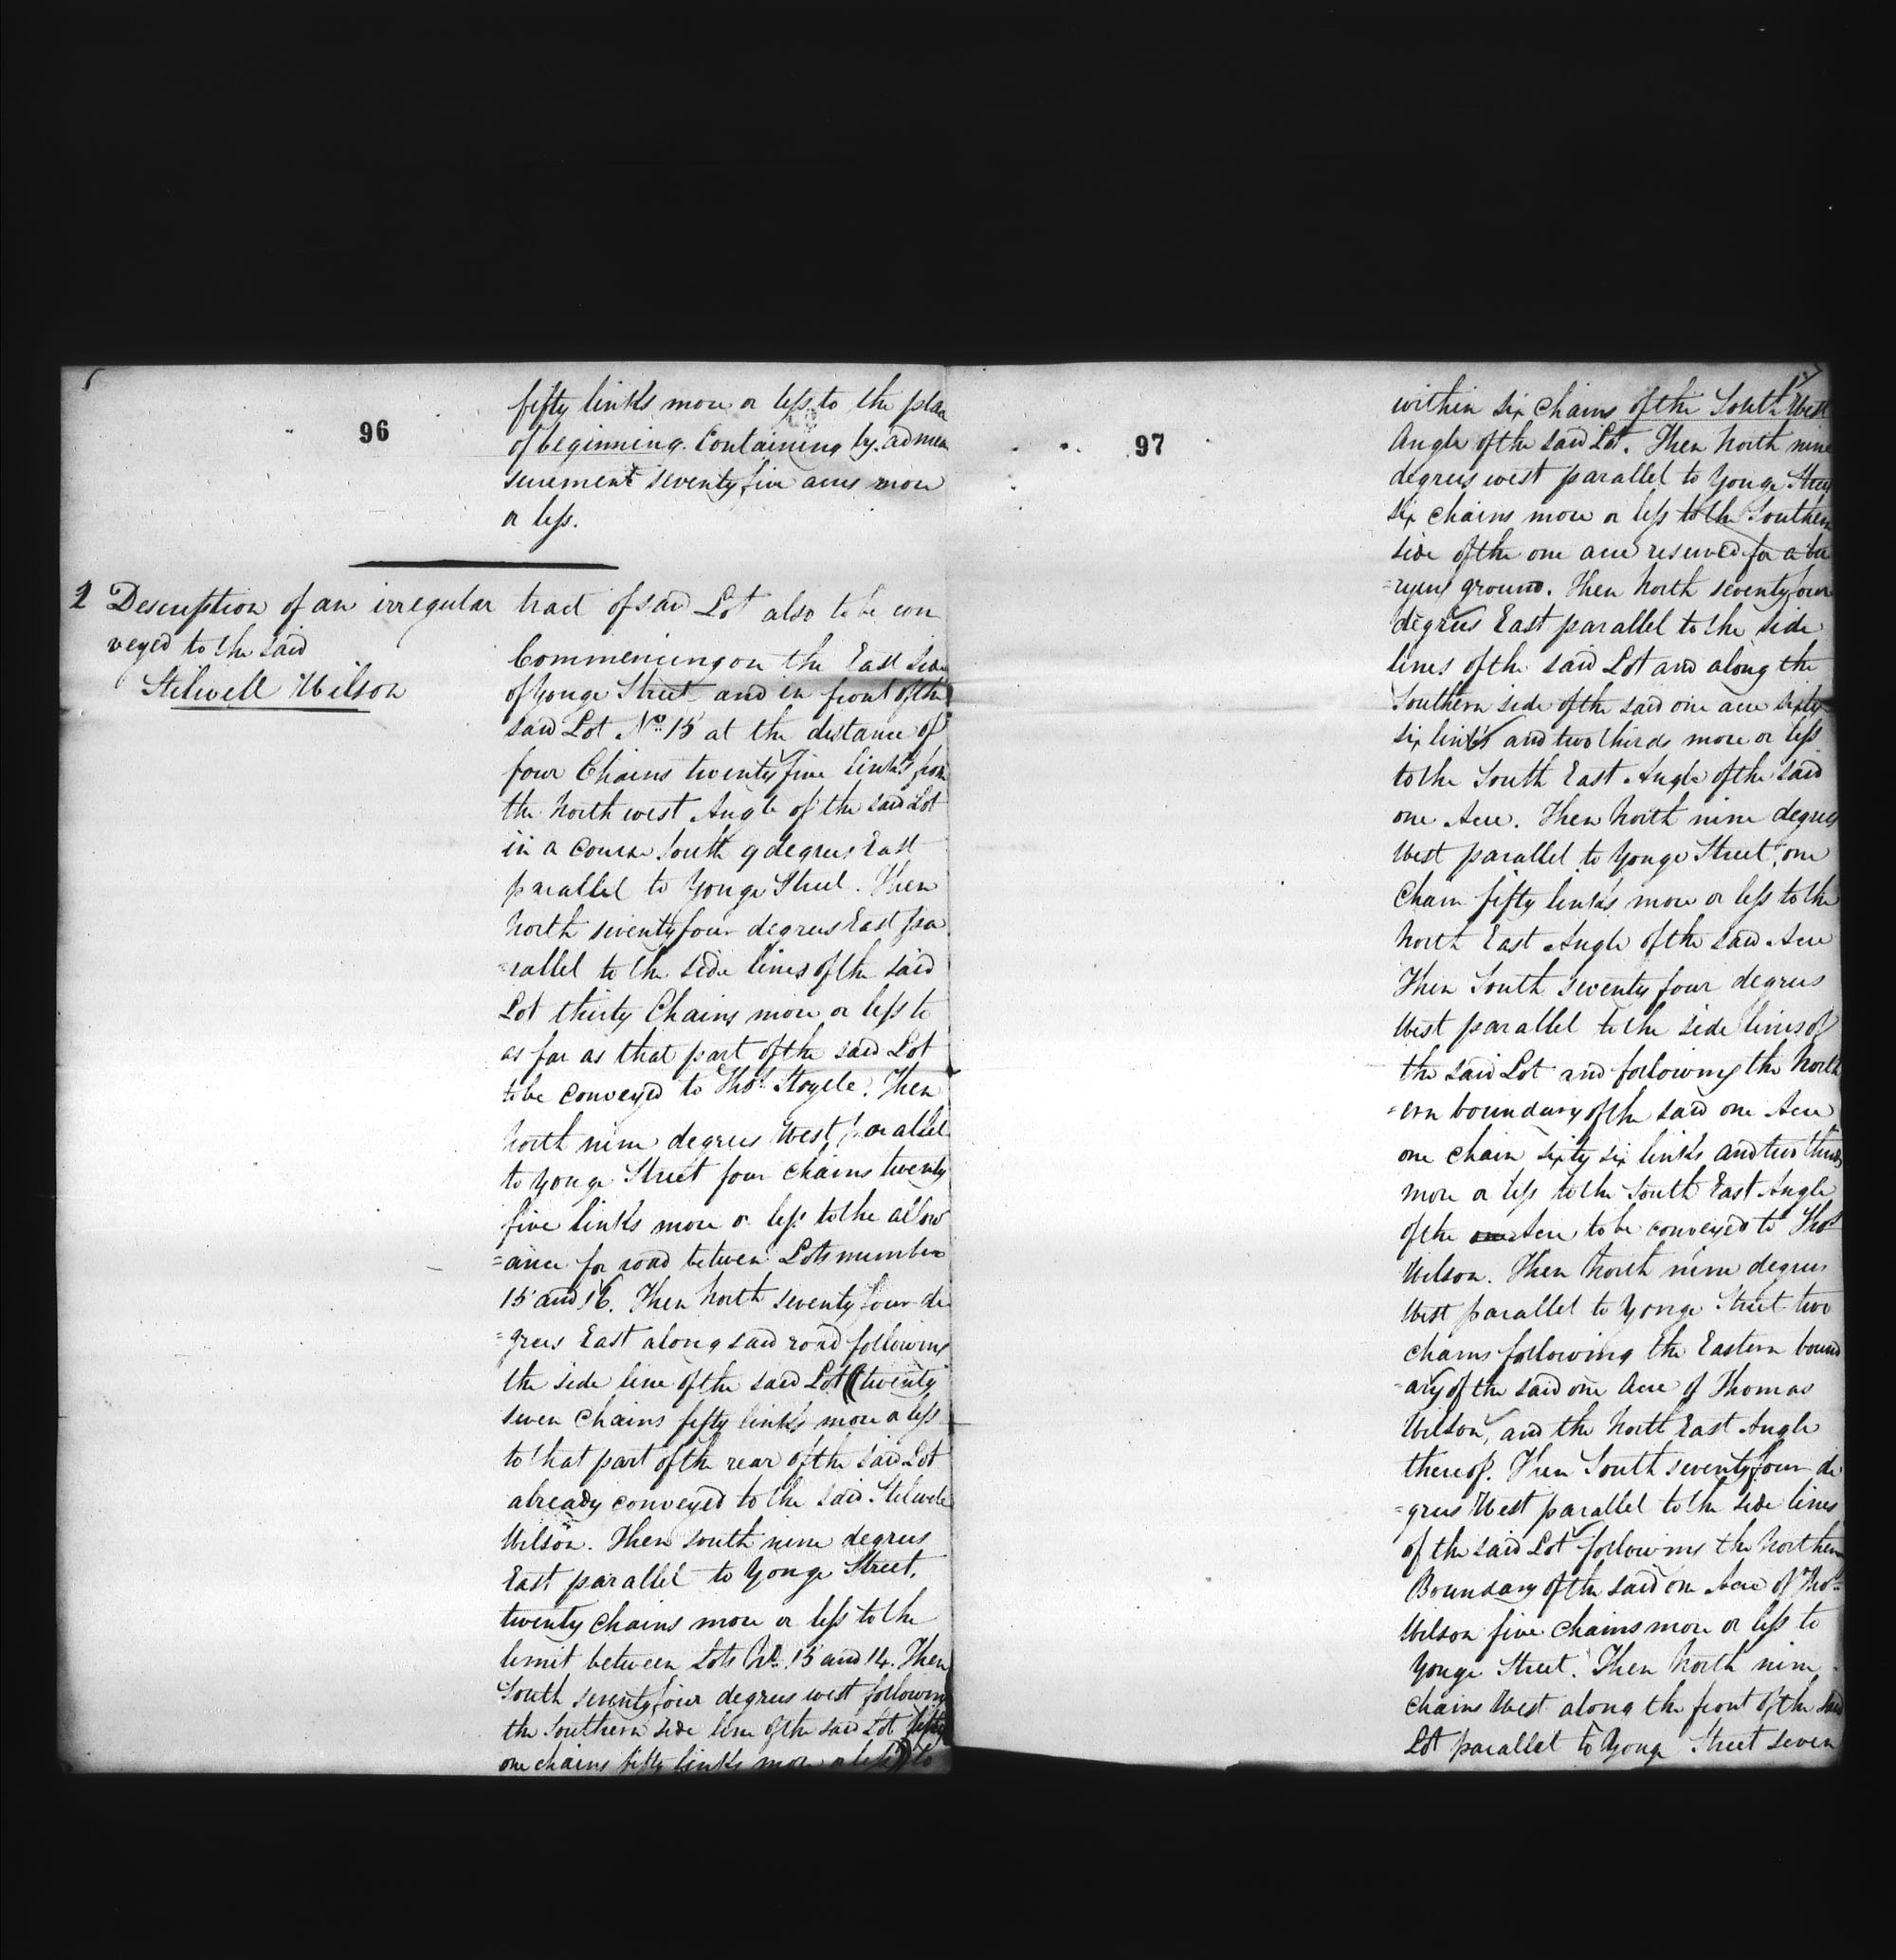 96
fifty links more or less to the place
of beginning. Containing by admea
surement seventy five acres more
or less.
2 Description of an irregular tract of said Lot also to be con
veyed to the said
Stilwell Wilson
Commencing on the East Side
of Yonge Street and in front of the
said Lot No. 15 at the distance of
four Chains twenty five links from
the North west Angle of the said Lot
in a course South 9 degrees East
parallel to Yonge Street. Then
North seventy four degrees East pa
=rallel to the side lines of the said
Lot thirty Chains more or less to
as far as that part of the said Lot
to be conveyed to Thos. Stoyele. Then
North nine degrees West parallel
to Yonge Street four chains twenty
five links more or less to the allow
=ance for road between Lots number
15 and 16. Then North seventy four de
=grees East along said road following
the side line of the said Lot (twenty
seven chains fifty links more or less
to that part of the rear of the said Lot
already conveyed to the said Stilwell
Wilson. Then South nine degrees
East parallel to Yonge Street,
twenty chains more or less to the
limit between Lots No. 15 and 14. Then
South seventy four degrees west following
the Southern side line of the said Lot fifty
one chains fifty links more or less) to
97
within six chains of the South West
Angle of the said Lot. Then North nine
degrees west parallel to Yonge Street
six chains more or less to the Southern
side of the one acre reserved for a bu
=rying ground. Then North seventy four
degrees East parallel to the side
lines of the said Lot and along the
Southern side of the said one acre sixty
six links and two thirds more or less
to the South East Angle of the said
one Acre. Then North nine degrees
West parallel to Yonge Street, one
Chain fifty links more or less to the
North East Angle of the said Acre
Then South seventy four degrees
West parallel to the side lines of
the said Lot and following the North
=ern boundary of the said one Acre
one chain sixty six links and two thirds
more or less to the South East Angle
of the one Acre to be conveyed to Thos
Wilson. Then North nine degrees
West parallel to Yonge Street two
chains following the Eastern bound
=ary of the said one Acre of Thomas
Wilson, and the North East Angle
thereof. Then South seventy four de
=grees West parallel to the side lines
of the said Lot following the Northern
Boundary of the said one Acre of Thos.
Wilson five chains more or less to
Yonge Street. Then North nine
chains West along the front of the said
Lot parallel to Yonge Street seven